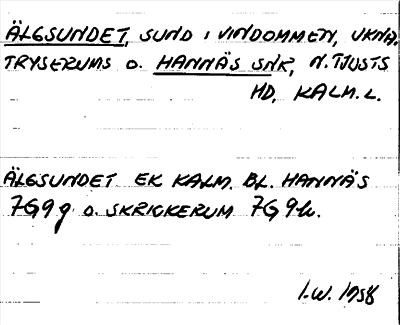 ÄLGSUNDET, SUND I VINDOMMEN, UKNA,
TRYSERUMS O. HANNÄS SNR, N. TJUSTS
HD, KALM. L.
ÄLGSUNDET EK KALM. BL. HANNÄS
7G9g O. SKRICKERUM 7G9h.
I.W. 1958